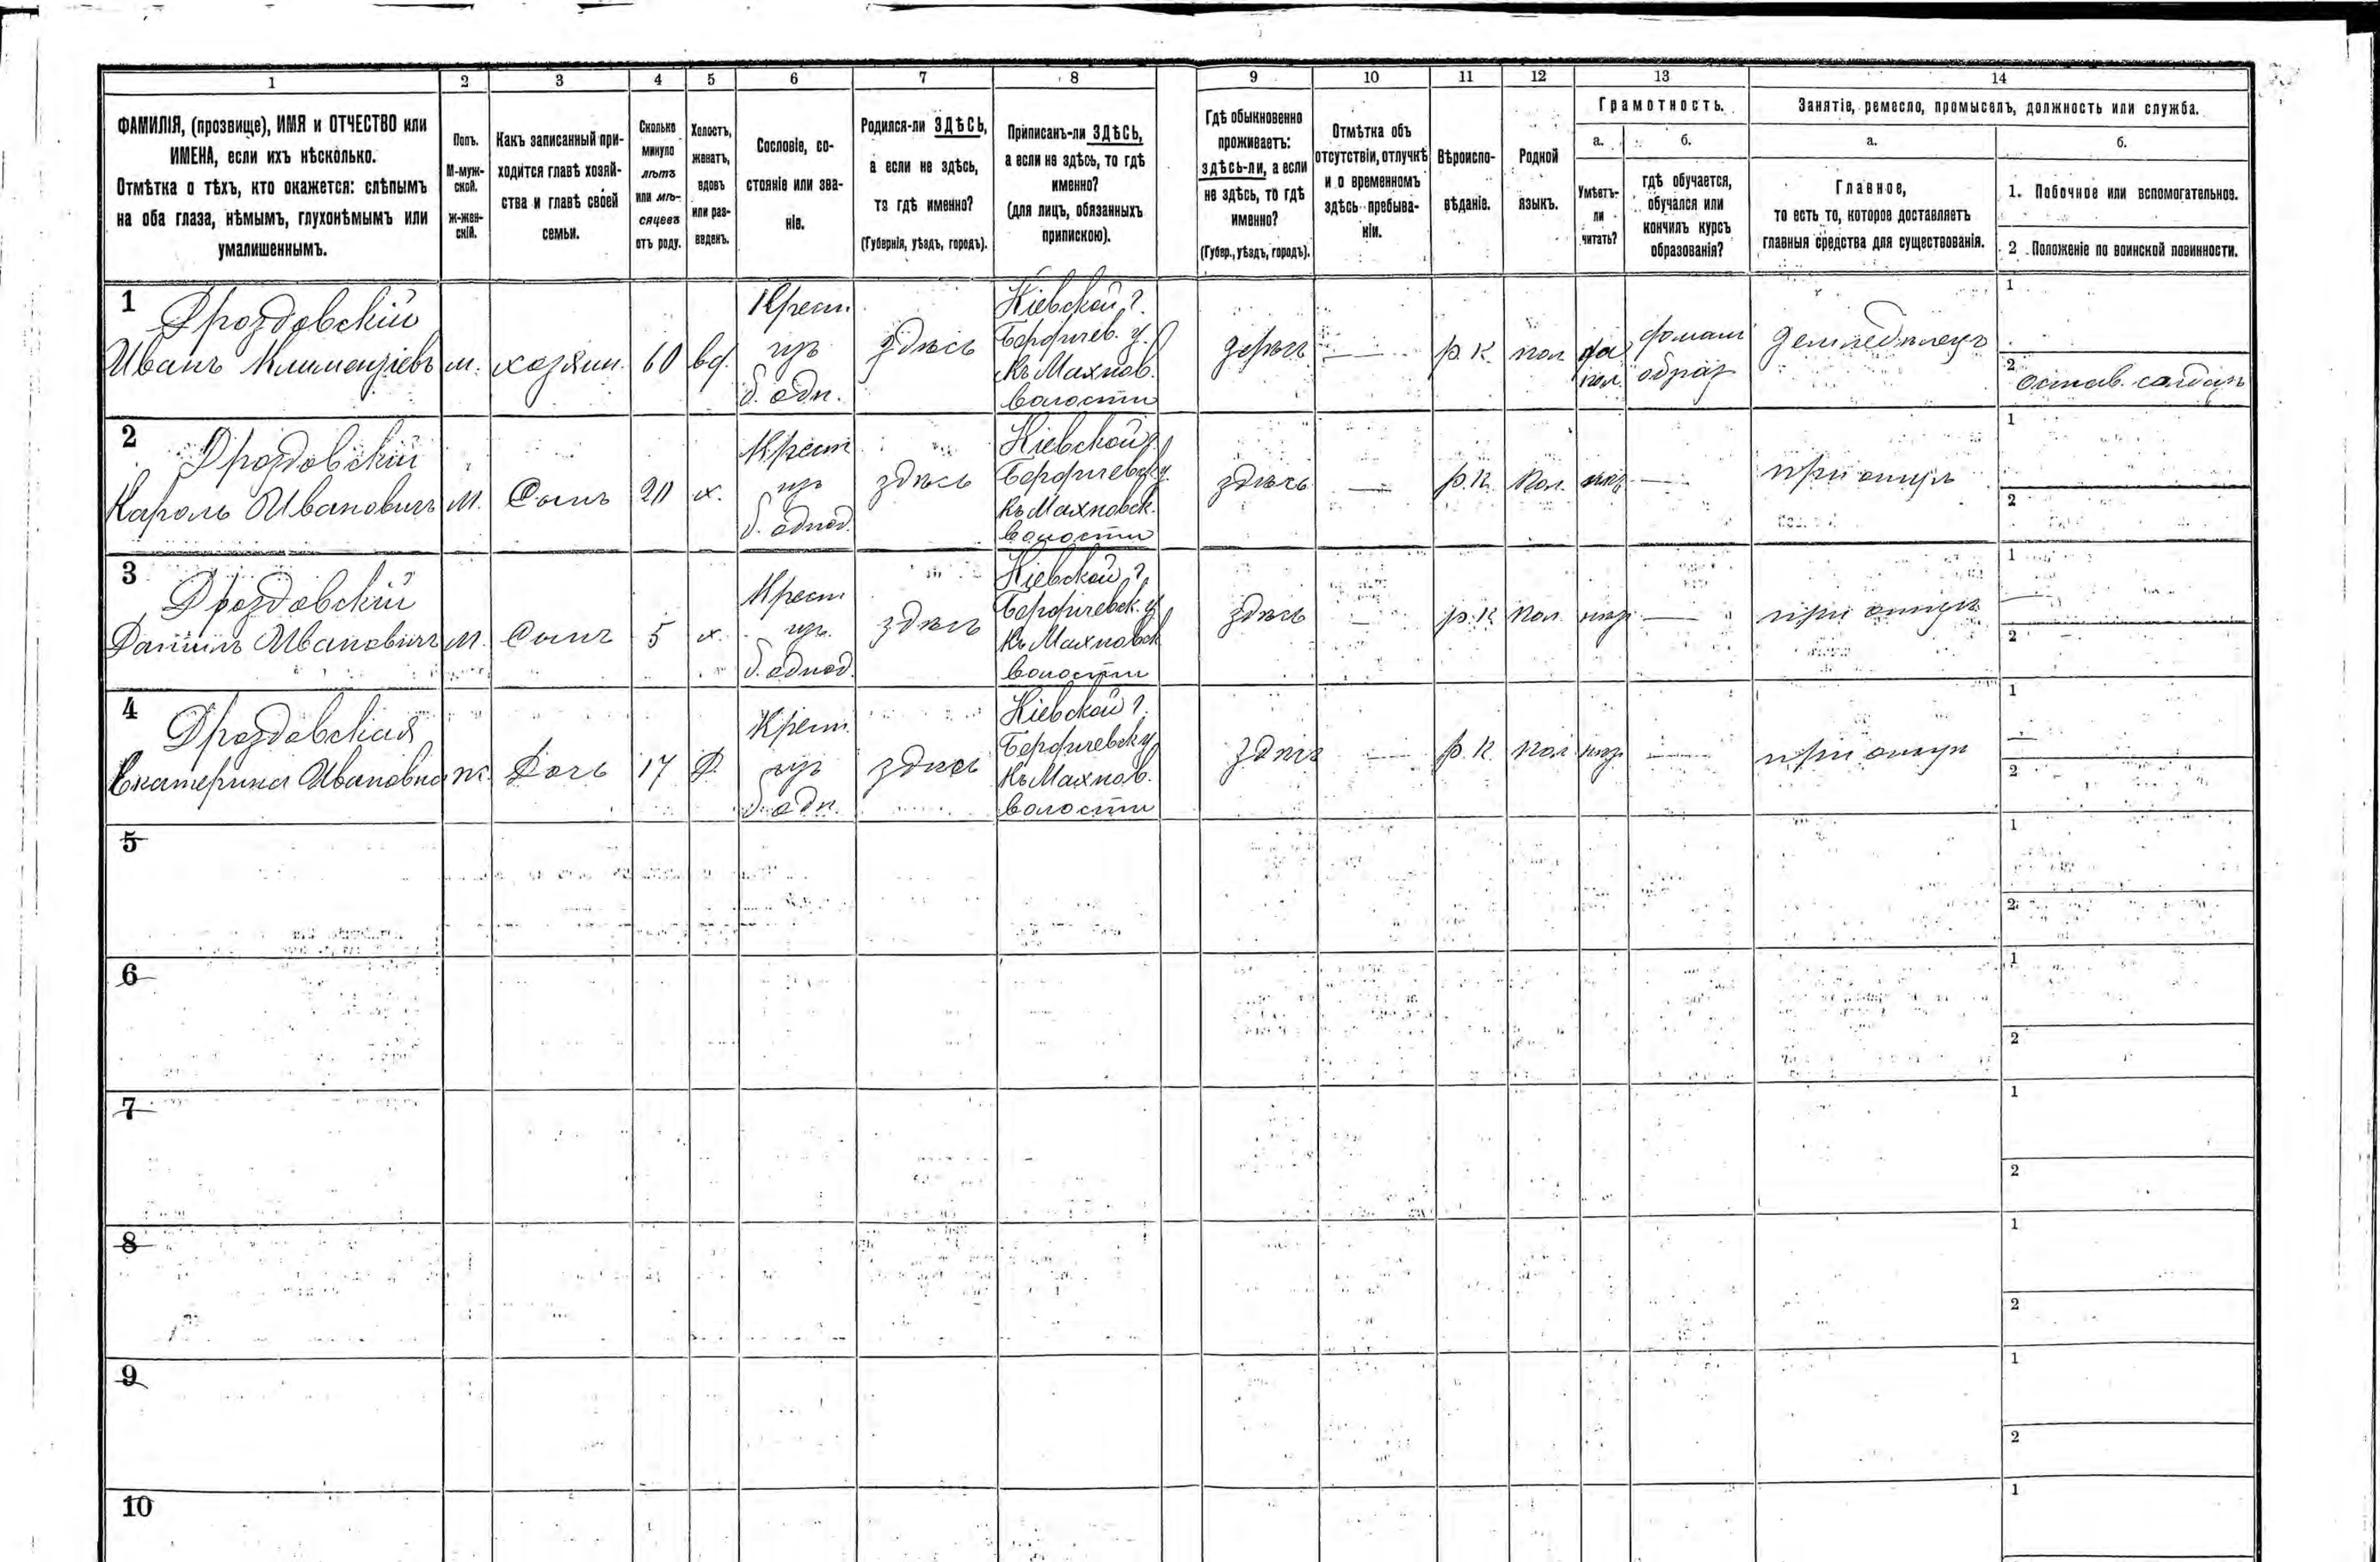 1 2 3 4 5 6 7 8 9 10 11 12 13 14
ФАМИЛІЯ, (прозвище), ИМЯ и ОТЧЕСТВО или
ИМЕНА, если ихъ нѣсколько.
Отмѣтка о тѣхъ, кто окажется: слѣпымъ
на оба глаза, нѣмымъ, глухонѣмымъ или
умалишеннымъ.
Полъ.
М-муж-
ской.
ж-жен-
скій.
Какъ записанный при-
ходится главѣ хозяй-
ства и главѣ своей
семьи.
Сколько
минуло
лѣтъ
или мѣ-
сяцевъ
отъ роду.
Холостъ,
женатъ,
вдовъ
или раз-
веденъ.
Сословіе, со-
стояніе или зва-
ніе.
Родился-ли ЗДѢСЬ,
а если не здѣсь,
то гдѣ именно?
(Губернія, уѣздъ, городъ).
Приписанъ-ли ЗДѢСЬ,
а если не здѣсь, то гдѣ
именно?
(для лицъ, обязанныхъ
припискою).
Гдѣ обыкновенно
проживаетъ:
здѣсь-ли, а если
не здѣсь, то гдѣ
именно?
(Губер., уѣздъ, городъ).
Отмѣтка объ
отсутствіи, отлучкѣ
и о временномъ
здѣсь пребыва-
ніи.
Вѣроиспо-
вѣданіе.
Родной
языкъ.
Грамотность.
а.
Умѣетъ-
ли
читать?
б.
гдѣ обучается,
обучался или
кончилъ курсъ
образованія?
Занятіе, ремесло, промыселъ, должность или служба.
а.
Главное,
то есть то, которое доставляетъ
главныя средства для существованія.
б.
1. Побочное или вспомогательное.
2. Положеніе по воинской повинности.
1
Дроздовскій
Иванъ Климентіевъ
м.
хозяин.
60
вд.
Крест.
изъ
б. одн.
здѣсь
Кіевской г.
Бердичев. у.
къ Махнов.
волости
здѣсь
—
р. к.
пол
да
пол.
домаш
образ
земледѣлецъ
1
2
остав. солдатъ
2
Дроздовскій
Кароль Ивановичъ
м.
Сынъ
20
х.
Крест
изъ
б. однод.
здѣсь
Кіевской г.
Бердичевск у.
къ Махновск.
волости
здѣсь
—
р. к.
пол.
—
при отцѣ
1
2
3
Дроздовскій
Даніилъ Ивановичъ
м.
Сынъ
5
х.
Крест
изъ
б. однод.
здѣсь
Кіевской г.
Бердичевск. у.
къ Махновск
волости
здѣсь
—
р. к.
пол
—
при отцѣ
1
2
4
Дроздовская
Екатерина Ивановна
ж.
Дочь
17
Д.
Крест.
изъ
б. одн.
здѣсь
Кіевской г.
Бердичевск у.
къ Махнов.
волости
здѣсь
—
р. к.
пол
—
при отцѣ
1
2
5
1
2
6
1
2
7
1
2
8
1
2
9
1
2
10
1